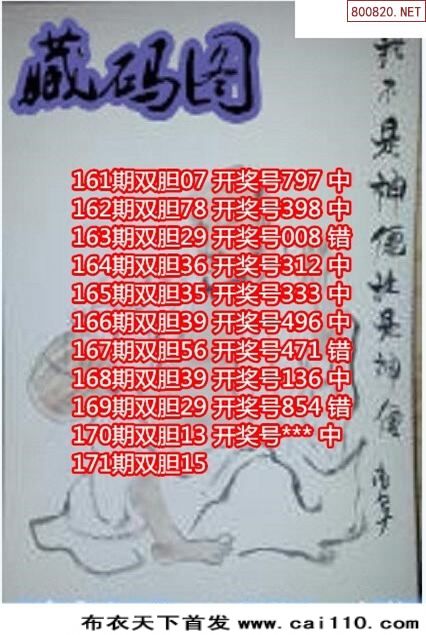 800820.NET
藏码图
我不是神僊谁是神僊
161期双胆07 开奖号797 中
162期双胆78 开奖号398 中
163期双胆29 开奖号008 错
164期双胆36 开奖号312 中
165期双胆35 开奖号333 中
166期双胆39 开奖号496 中
167期双胆56 开奖号471 错
168期双胆39 开奖号136 中
169期双胆29 开奖号854 错
170期双胆13 开奖号*** 中
171期双胆15
布衣天下首发 www.cai110.com